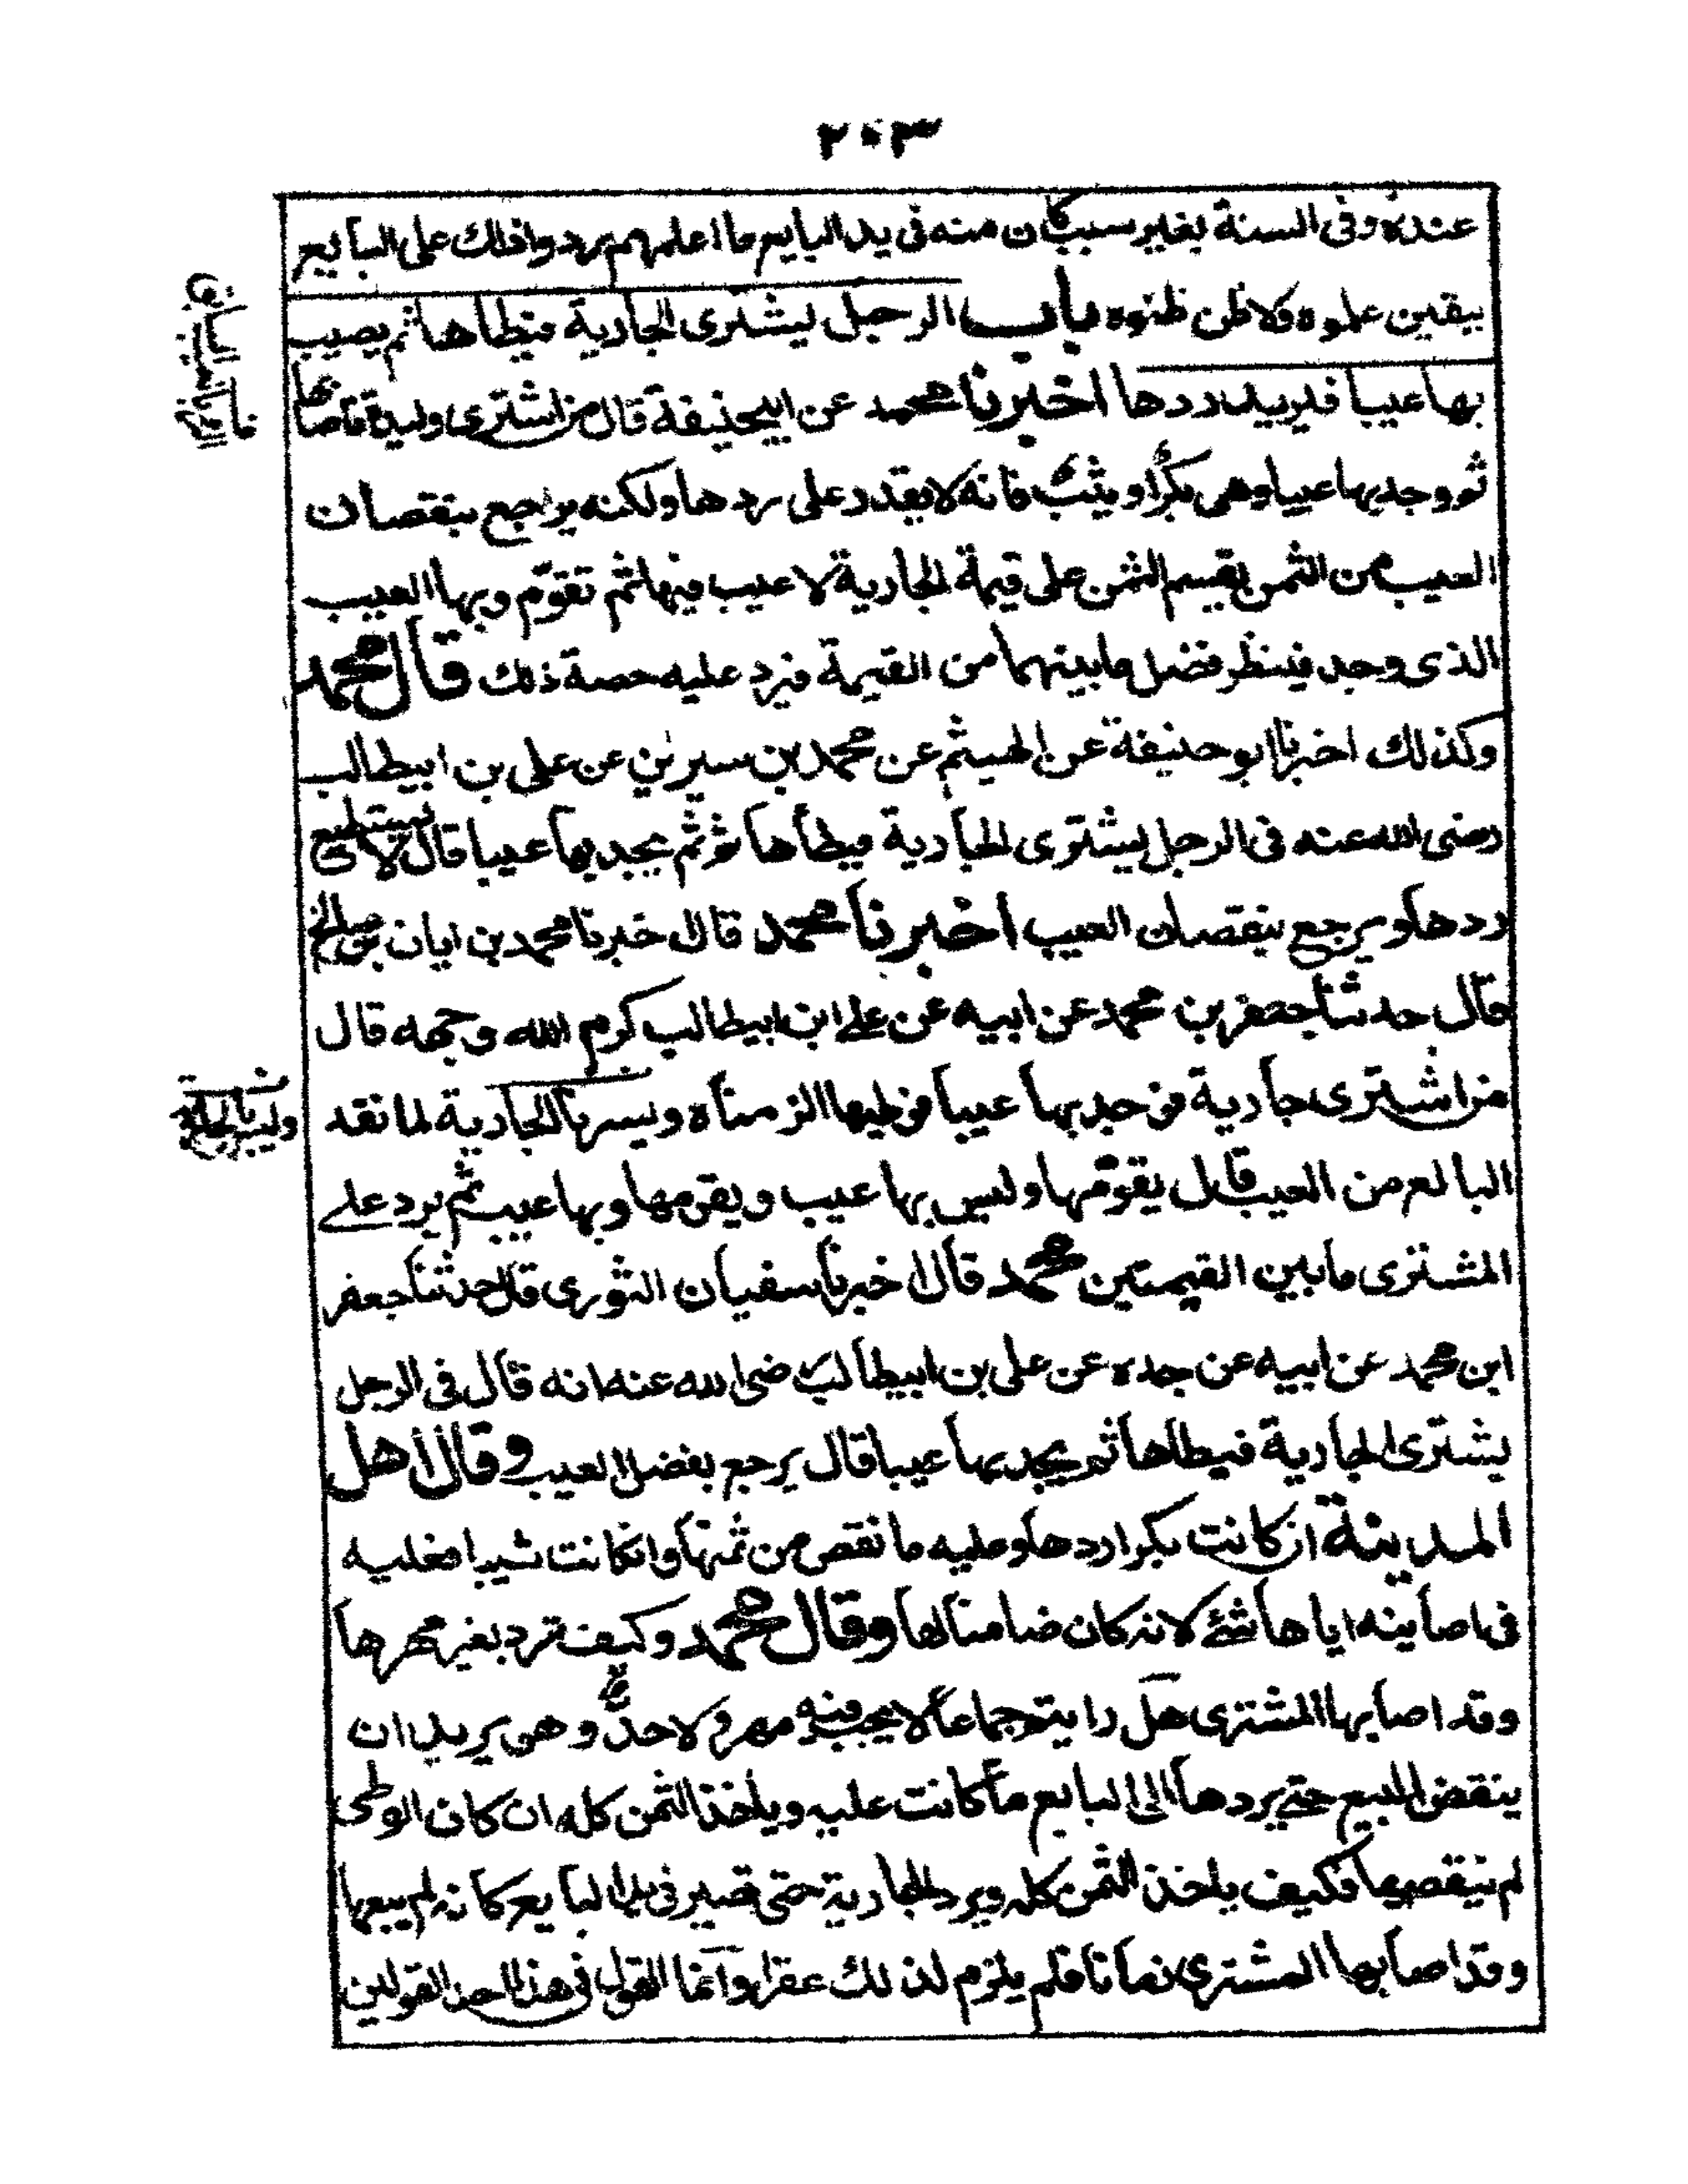 ٢٠٣
عنده وفى السنة بغير سبب كان منه فى يد البايع ما اعلمهم يردوا ذلك على البايع
بيقين علموه ولا ظن ظنوه باب الرجل يشترى الجارية فيطأها ثم يصيب
بها عيبا فيريد ردها اخبرنا محمد عن ابيحنيفة قال من اشترى وليدة فاصابها
ثم وجد بها عيبا وهى بكر او ثيب فانه لا يقدر على ردها ولكنه يراجع بنقصان
العيب من الثمن يقسم الثمن على قيمة الجارية لا عيب فيها ثم تقوّم وبها العيب
الذى وجد فينظر فضل ما بينهما من القيمة فيرد عليه حصة ذلك قال محمد
وكذلك اخبرنا ابو حنيفة عن الهيثم عن محمد بن سيرين عن على بن ابيطالب
رضى الله عنه فى الرجل يشترى الجارية فيطأها ثم يجد بها عيبا قال لا يستطيع
ردها ويرجع بنقصان العيب اخبرنا محمد قال اخبرنا محمد بن ابان بن صالح
قال حدثنا جعفر بن محمد عن ابيه عن على ابن ابيطالب كرم الله وجهه قال
من اشترى جارية فوجد بها عيبا فوطيها الزمناه ويسرنا الجارية لما نقد
البالعر من العيب قال يقوّمها وليس بها عيب ويقومها وبها عيب ثم يرد على
المشترى ما بين القيمتين محمد قال اخبرنا سفيان الثورى قال حدثنا جعفر
ابن محمد عن ابيه عن جده عن على بن ابيطالب رضى الله عنه انه قال فى الرجل
يشترى الجارية فيطأها ثم يجد بها عيبا قال يرجع بفضل العيب وقال اهل
المدينة ان كانت بكرا ردها وعليه ما نقص من ثمنها وانكانت ثيبا فعليه
فى اصابته اياها شئ لانه كان ضامنا لها وقال محمد وكيف ترد بغير مهرها
وقد اصابها المشترى هل رايتم جماعا لا يجب فيه مهر ولا حدّ وهو يريد ان
ينقض البيع حتى يردها الى البايع كما كانت عليه وياخذ الثمن كله ان كان الوطى
لم ينقصها فكيف ياخذ الثمن كله ويرد الجارية حتى تصير فى يد البايع كانه لم يبعها
وقد اصابها المشترى زمانا فلم يلزم لذلك عقرا وانما القول فى هذا احد القولين